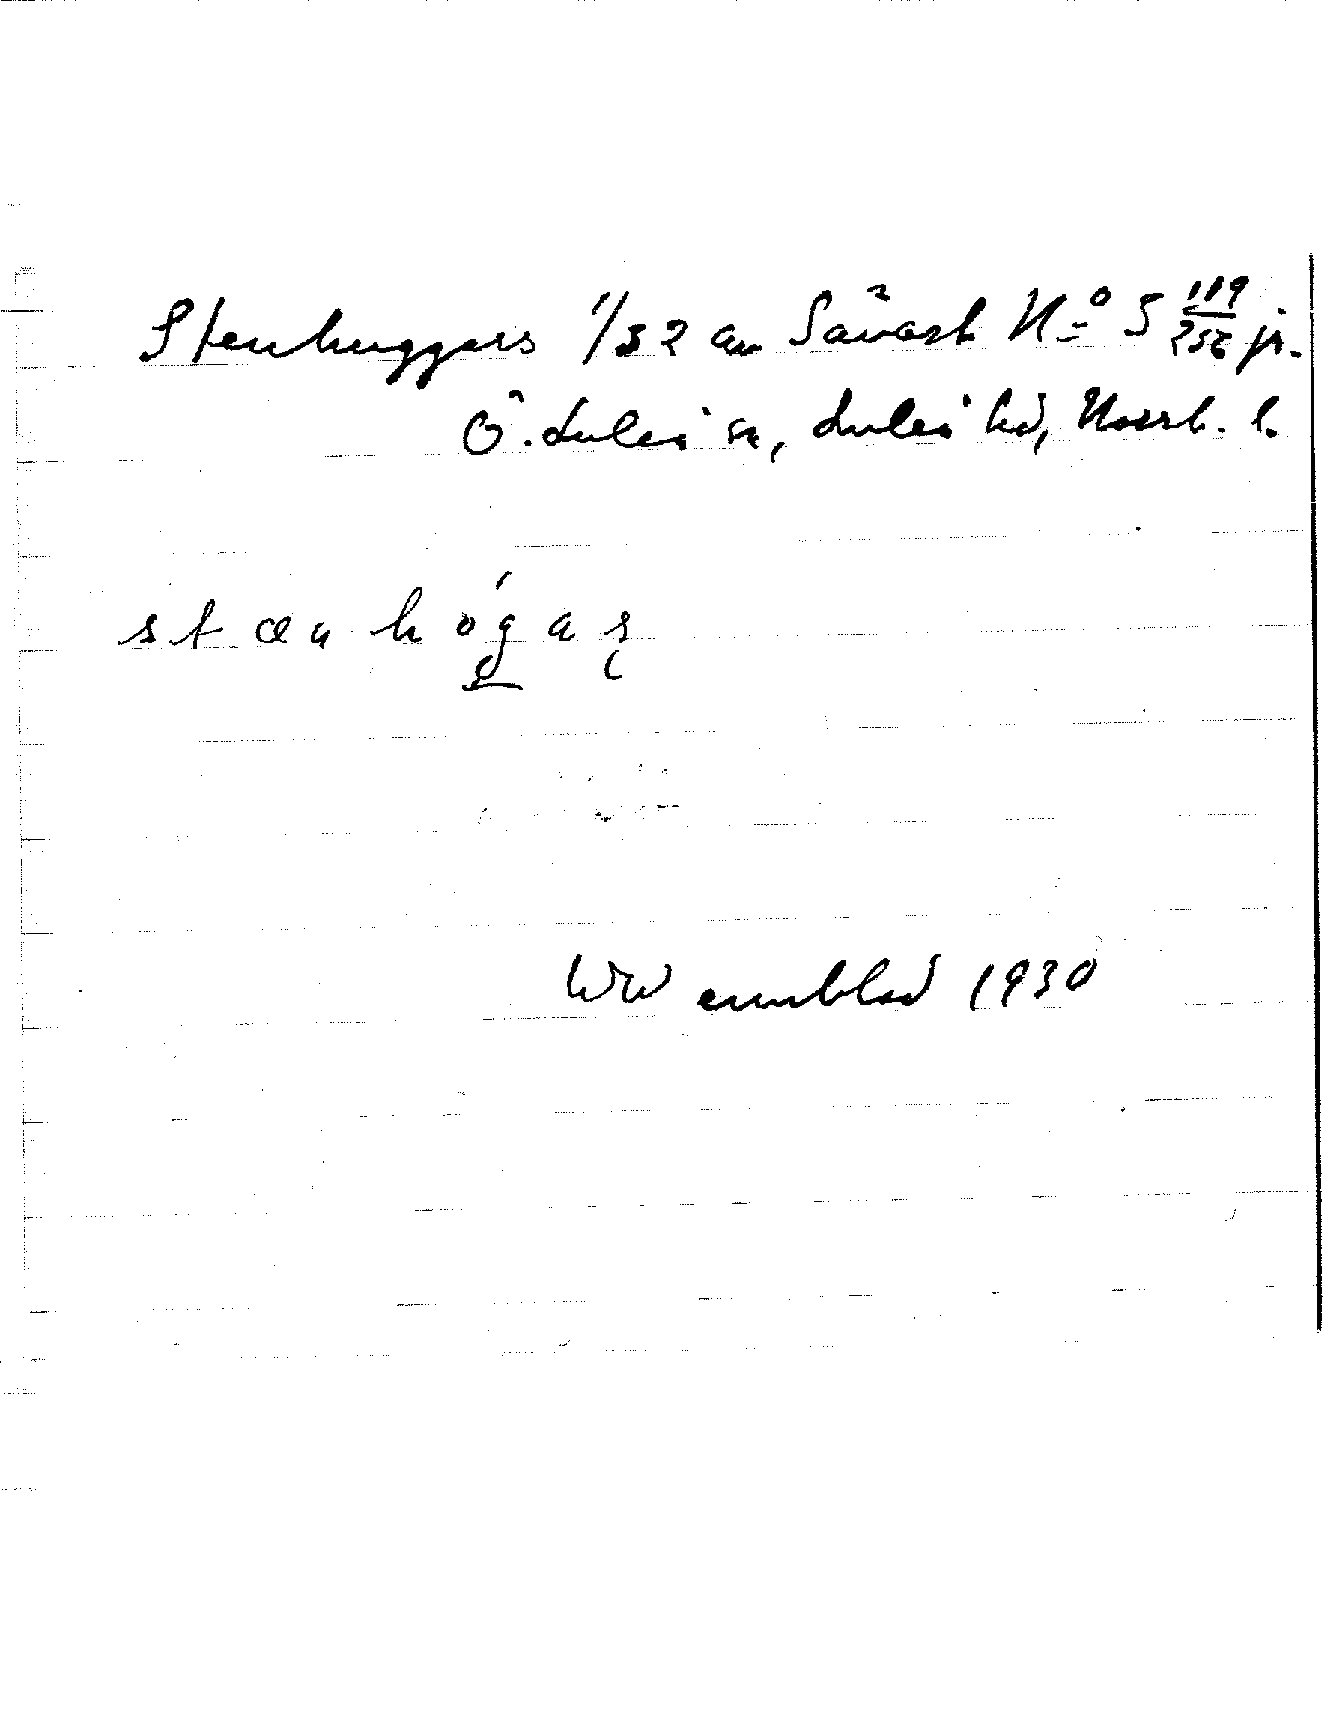 Stenhuggers 1/32 av Sävast No 5 119/256 jr.
Ö. Luleå sn, Luleå hd, Norrb. l.
stænhógaş
W Wennblad 1930